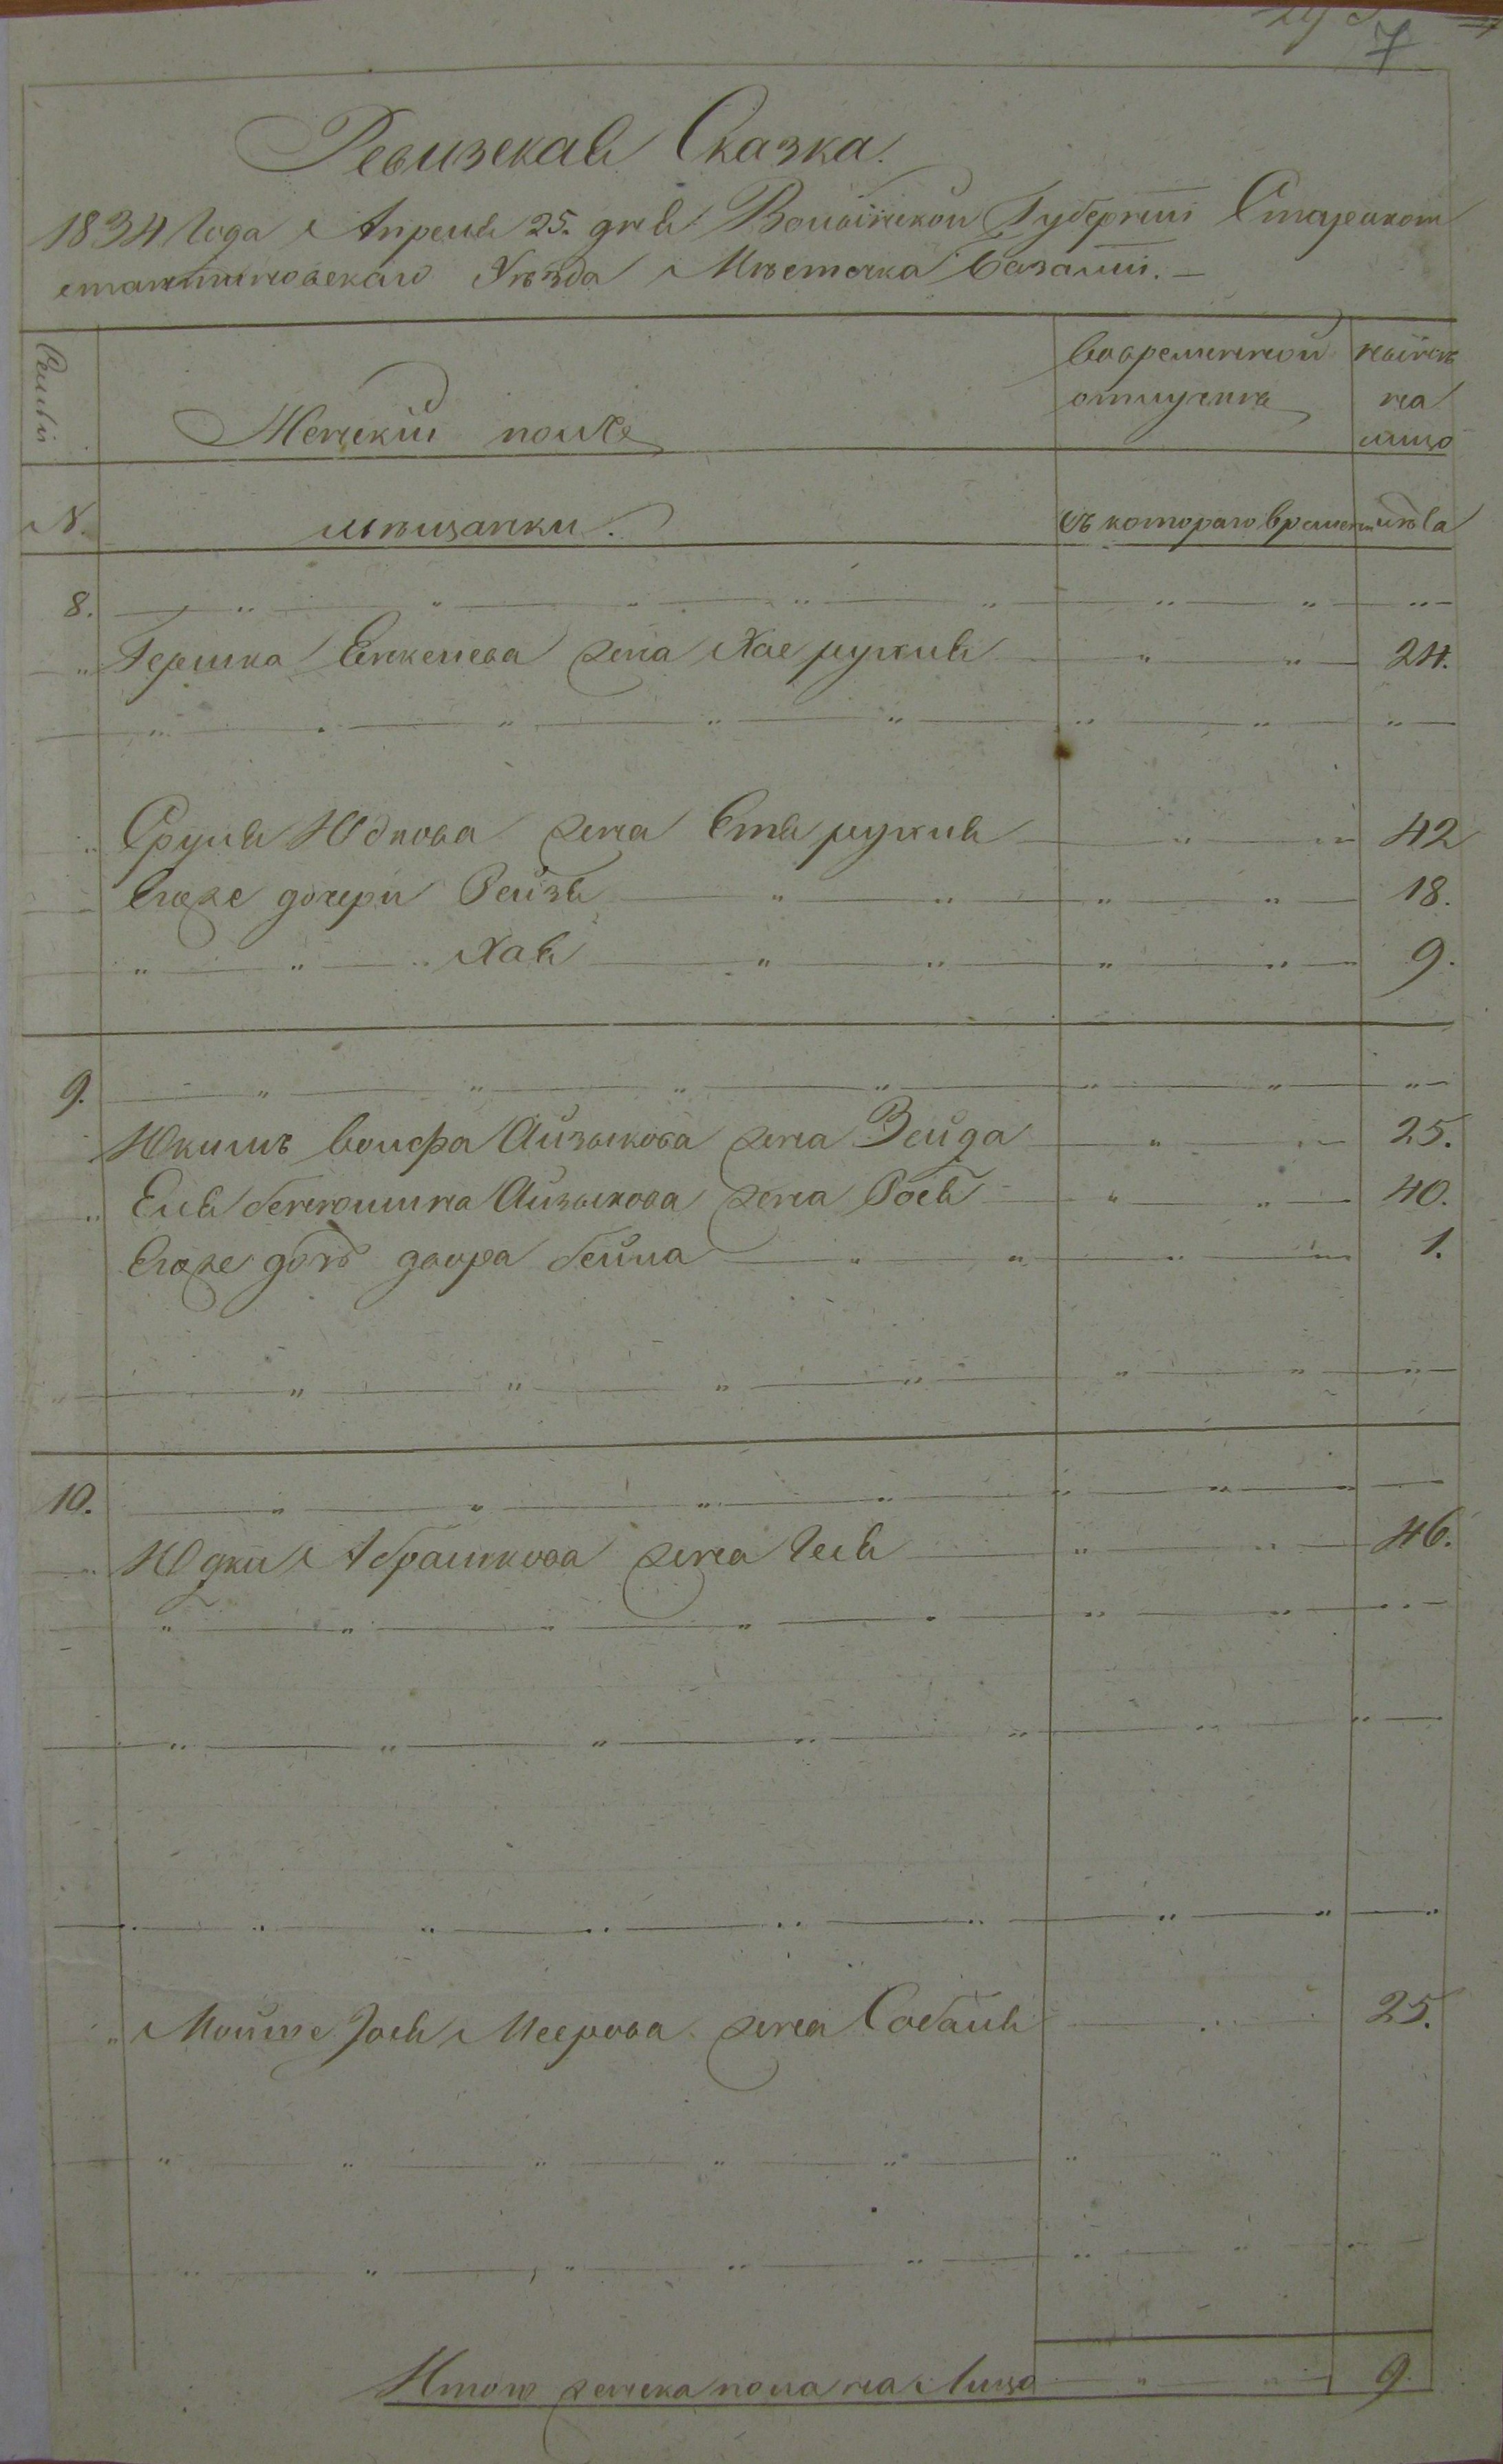 7
Ревизская Сказка.
1834 Года Апреля 25. дня Волынской Губерніи Староконстантиновскаго Уѣзда Мѣстечка Базаліи. —
Семьи
Женскій полъ
Во временной отлучкѣ
нынѣ на лицо
N.
мѣщанки.
Съ котораго времени
лѣта
8.
Гершка Енкелева жена Хае рухля 24.
Сруля Юдкова жена Етя рухля 42
Егоже дочери Рейзя 18.
Хая 9.
9.
Юкиль волфа Айзыкова жена Зейда 25.
Еля бенюмина Айзыкова жена Рося 40.
Егоже дочь двора бейла 1.
10.
Юдки Абрамкова жена Геня 46.
Мойше Іося Меерова жена Собаля 25.
Итого женска пола на лицо 9.